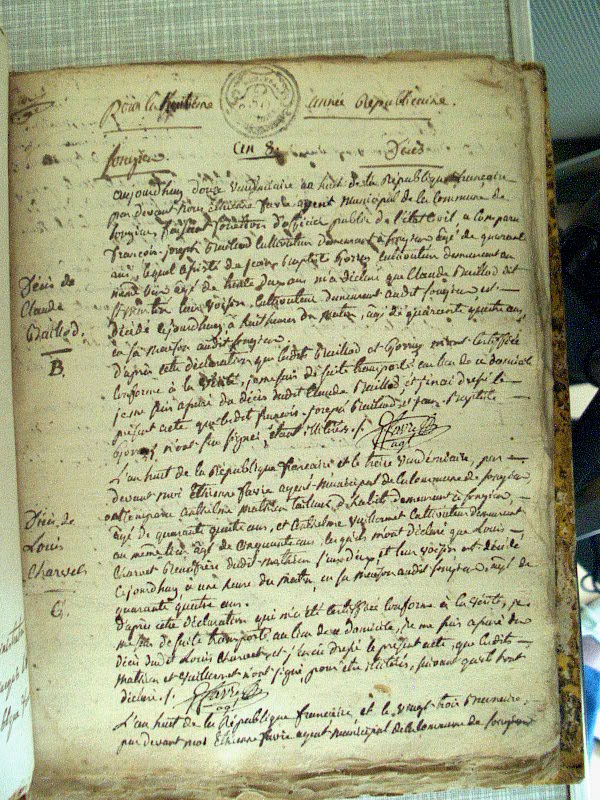 Pour la huitième année Républicaine.
an 8. Décès
Songieu.
aujourdhuy douze vendémiaire an huit de la République française
par devant nous Etienne Favre agent municipal de la commune de
Songieu, faisant fonction d'officier public de l'état civil, a comparu
françois joseph cultivateur demeurant à Songieu âgé de quarante
ans, lequel assisté de jean baptiste cultivateur demeurant au
même lieu âgé de trente ans, m'a déclaré que Claude dit
leur voisin, cultivateur demeurant audit Songieu est
décédé cejourdhuy à huit heures du matin, âgé de quarante quatre ans
en sa maison audit Songieu.
Décès de
Claude
B.
D'après cette déclaration que lesdits et m'ont certifiée
conforme à la vérité, je me suis de suite transporté au lieu de ce domicile
je me suis assuré du décès dudit Claude et j'en ai dressé le
présent acte que ledit françois joseph et jean Baptiste
n'ont pas signé étant illitérés. /.
Favre
agt
L'an huit de la République française et le treize vendémiaire, par
devant moi Etienne Favre agent municipal de la commune de Songieu,
ont comparu anthelme mathieu tailleur d'habits demeurant à Songieu,
âgé de quarante quatre ans, et anthelme Vuillermet cultivateur demeurant
au même lieu, âgé de cinquante ans, lesquels m'ont déclaré que Louis
Charvet dudit mathieu et leur voisin est décédé
cejourdhuy à une heure du matin, en sa maison audit Songieu, âgé de
quarante quatre ans.
Décès de
Louis
Charvet
C.
D'après cette déclaration qui m'a été certifiée conforme à la vérité, je
me suis de suite transporté au lieu de ce domicile, je me suis assuré du
décès dudit Louis Charvet et j'en ai dressé le présent acte, que lesdits
mathieu et Vuillermet n'ont signé, pour être illitérés, suivant qu'ils l'ont
déclaré. /.
Favre
agt
L'an huit de la République française, et le vingt trois brumaire,
par devant moi Etienne Favre agent municipal de la commune de Songieu